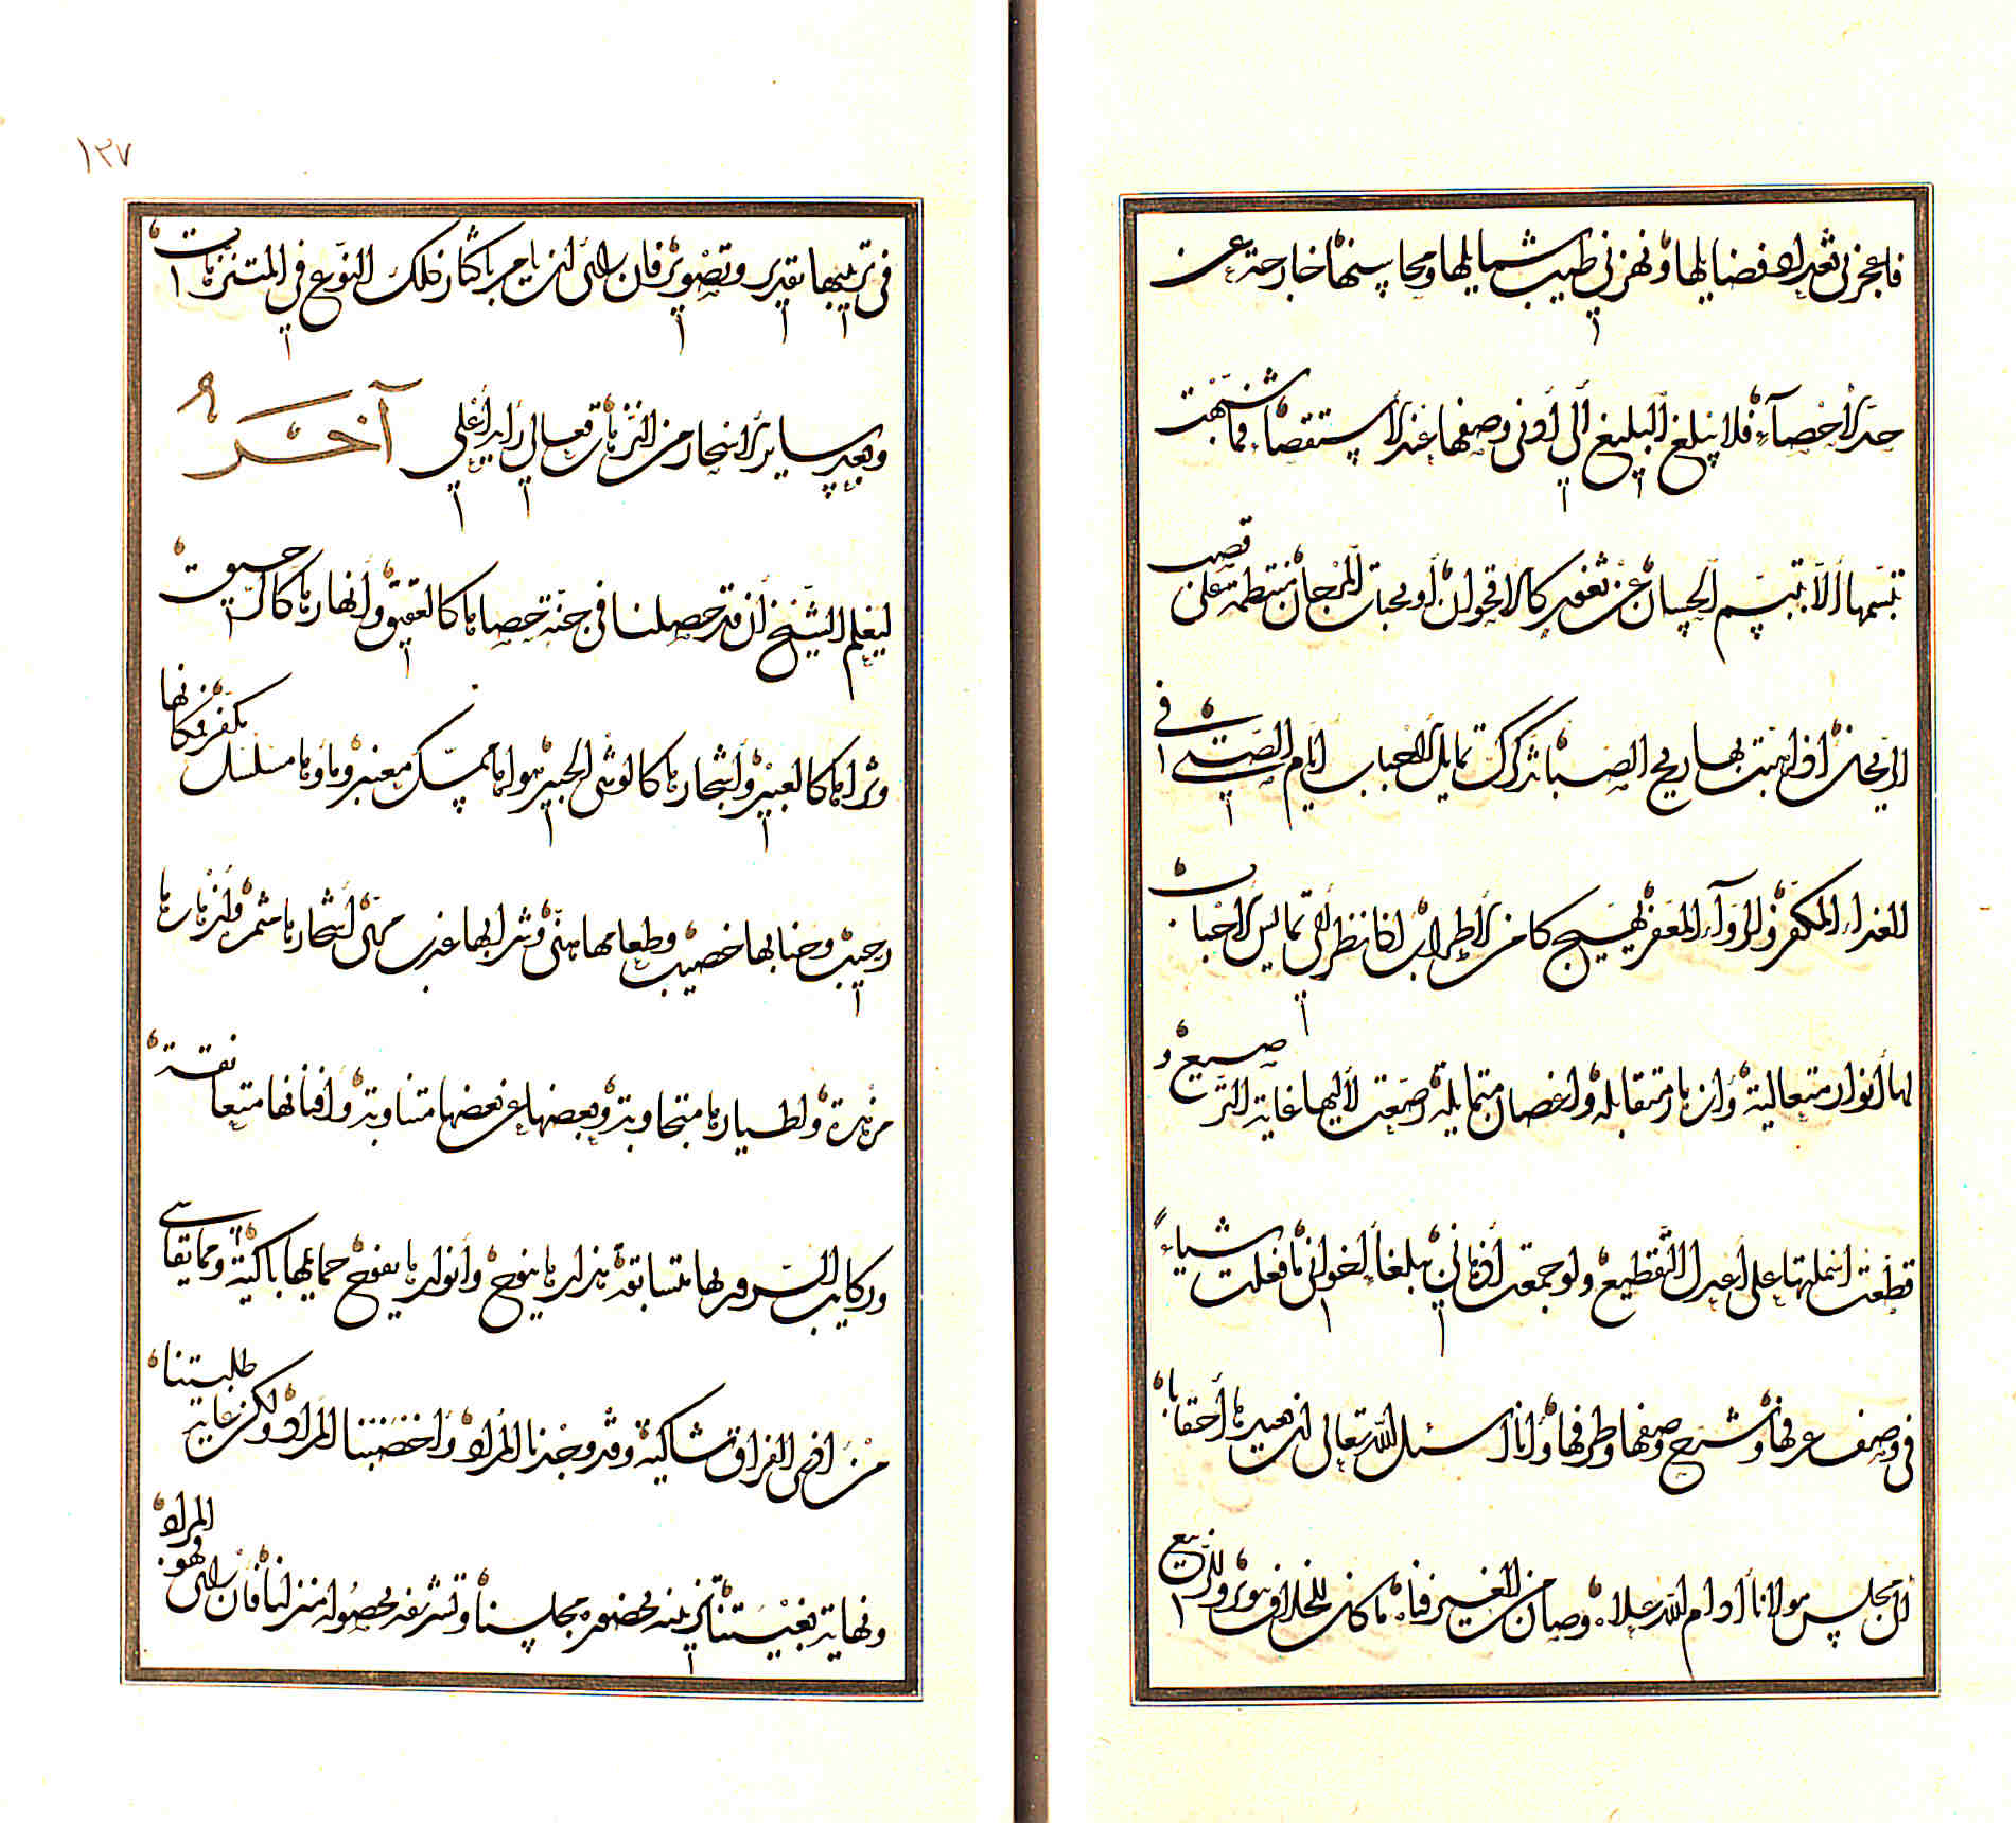 فاعجزني تعداد فضايلها ونهزني طيب شمايلها ومحاسنها خارجة عن
حد الاحصاء فلا يبلغ البليغ الى اوفى وصفها عند الاستقصاء فما شبهت
تبسمها الا بتبسم الحسان عن ثغور كالاقحوان او بحبات المرجان منتظمة على قصب
الريحان اذا هبت بها ريح الصبا تذكرك تمايل الاحباب ايام الصبى في
الغداء المكفر والرداء المعفر يهيج كامن الاطراب اذا نظر الى تمايس الاحباب
لها انوار متعالية وازهار متقابلة واغصان متمايلة وصنعت لاليها غاية الترصيع و
قطعت انملتها على اعدل التقطيع ولو جمعت اذهاني مبلغا لاخواني ما فعلت شياء
في وصف عرفها وشرح وصفها وطرفها وانا اسئل الله تعالى ان يعيدها احقابا
الى مجلس مولانا ادام الله علاه وصان من الغير فناه ما كان للخلاف نور وللربيع
١٣٧
في ترتيبها تقدير وتصوير فان راى ان يامر باكثار ذلك النوع في المتنزهات
وبعد ساير الاشجار من النزهات فعالى رايه اعلى آخر
ليعلم الشيخ ان قد حصلنا في جنة حصاها كالعقيق وانهارها كالرحيق
وثراها كالعبير واشجارها كالوشى الحبير هواها ممسك معنبر وماوها مسلسل مكفر ومكانها
رحيب وجنابها خصيب وطعامها هنى وشرابها عذب مهنى اشجارها مثمرة وازهارها
مزهرة واطيارها متجاوبة وبعضها عن بعضها متناوبة وافنانها متعانقة
وركايب السرور بها متسابقة هزارها ينوح وانوارها يفوح حمايمها باكية ومما يقاسى
من اذى الفراق شاكية وقد وجدنا المراد واخصبنا المراد ولكن غاية طلبتنا
ونهاية بغيتنا تزيينه بحضوره مجلسنا وتشريفه بحصوله منزلنا فان راى وهو المراد